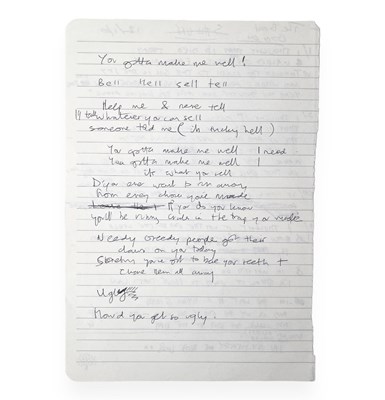 You gotta make me well!
Bell Hell sell tell
Help me & never tell
I'll take whatever you can sell
someone told me (in making hell)
You gotta make me well I need
You gotta make me well I
its what you sell
D'you ever want to run away
From every choice you've made
If you do you know
you'll be running circles in the trap you made
Needy greedy people got their
claws on you today
you've got to bare your teeth +
chase them all away
Ugly
How'd you get so ugly.